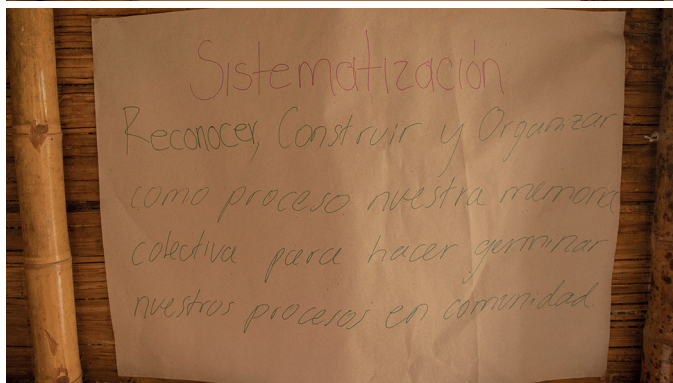 Sistematización
Reconocer, Construir y Organizar
como proceso nuestra memoria
colectiva para hacer germinar
nuestros procesos en comunidad.